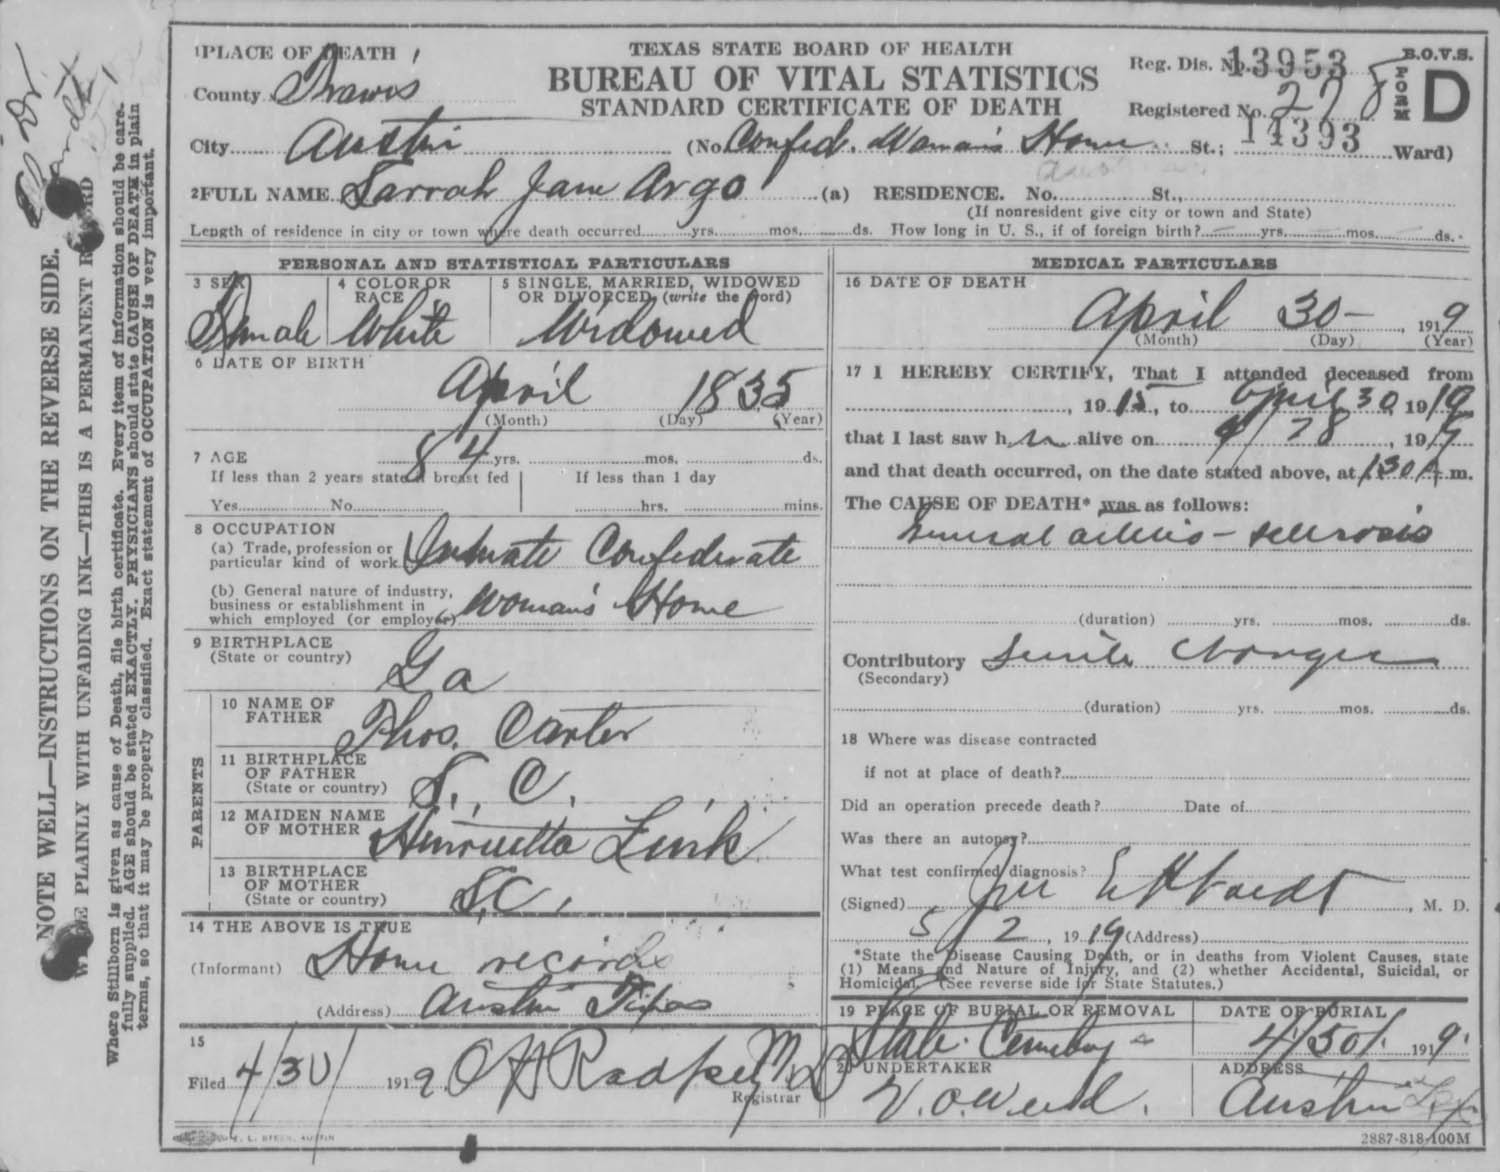 1 PLACE OF DEATH
County Travis
City Austin
TEXAS STATE BOARD OF HEALTH
BUREAU OF VITAL STATISTICS
STANDARD CERTIFICATE OF DEATH
(No. Confed. Woman's Home St.; Ward)
Reg. Dis. No. 13953
Registered No. 278
14393
B.O.V.S.
FORM D
2 FULL NAME Sarrah Jane Argo (a) RESIDENCE. No. St.,
(If nonresident give city or town and State)
Length of residence in city or town where death occurred yrs. mos. ds. How long in U. S., if of foreign birth? yrs. mos. ds.
PERSONAL AND STATISTICAL PARTICULARS
3 SEX
Female
4 COLOR OR RACE
White
5 SINGLE, MARRIED, WIDOWED
OR DIVORCED, (write the word)
Widowed
6 DATE OF BIRTH
April 1835
(Month) (Day) (Year)
7 AGE
84 yrs. mos. ds.
If less than 2 years state if breast fed If less than 1 day
Yes No hrs. mins.
8 OCCUPATION
(a) Trade, profession or
particular kind of work Inmate Confederate
(b) General nature of industry,
business or establishment in
which employed (or employer) Woman's Home
9 BIRTHPLACE
(State or country) Ga
PARENTS
10 NAME OF
FATHER Thos. Carter
11 BIRTHPLACE
OF FATHER
(State or country) S. C.
12 MAIDEN NAME
OF MOTHER Henrietta Link
13 BIRTHPLACE
OF MOTHER
(State or country) S.C.
14 THE ABOVE IS TRUE
(Informant) Home records
(Address) Austin Texas
15
Filed 4/30/ 1919. M.D.
Registrar
MEDICAL PARTICULARS
16 DATE OF DEATH
April 30 - , 1919
(Month) (Day) (Year)
17 I HEREBY CERTIFY, That I attended deceased from
, 1915, to April 30 1919
that I last saw her alive on 4/28, 1919
and that death occurred, on the date stated above, at 1:30 A.m.
The CAUSE OF DEATH* was as follows:
General arterio-sclerosis
(duration) yrs. mos. ds.
Contributory Senile changes
(Secondary)
(duration) yrs. mos. ds.
18 Where was disease contracted
if not at place of death?
Did an operation precede death? Date of
Was there an autopsy?
What test confirmed diagnosis?
(Signed) Eckhardt, M. D.
5/2, 1919 (Address)
*State the Disease Causing Death, or in deaths from Violent Causes, state
(1) Means and Nature of Injury, and (2) whether Accidental, Suicidal, or
Homicidal. (See reverse side for State Statutes.)
19 PLACE OF BURIAL OR REMOVAL
State Cemetery
DATE OF BURIAL
4/30/ 1919.
20 UNDERTAKER
V.O. Weed.
ADDRESS
Austin Tex
2887-818-100M
NOTE WELL—INSTRUCTIONS ON THE REVERSE SIDE.
WRITE PLAINLY WITH UNFADING INK—THIS IS A PERMANENT RECORD
Where Stillborn is given as cause of Death, file birth certificate. Every item of information should be care.
fully supplied. AGE should be stated EXACTLY. PHYSICIANS should state CAUSE OF DEATH in plain
terms, so that it may be properly classified. Exact statement of OCCUPATION is very important.